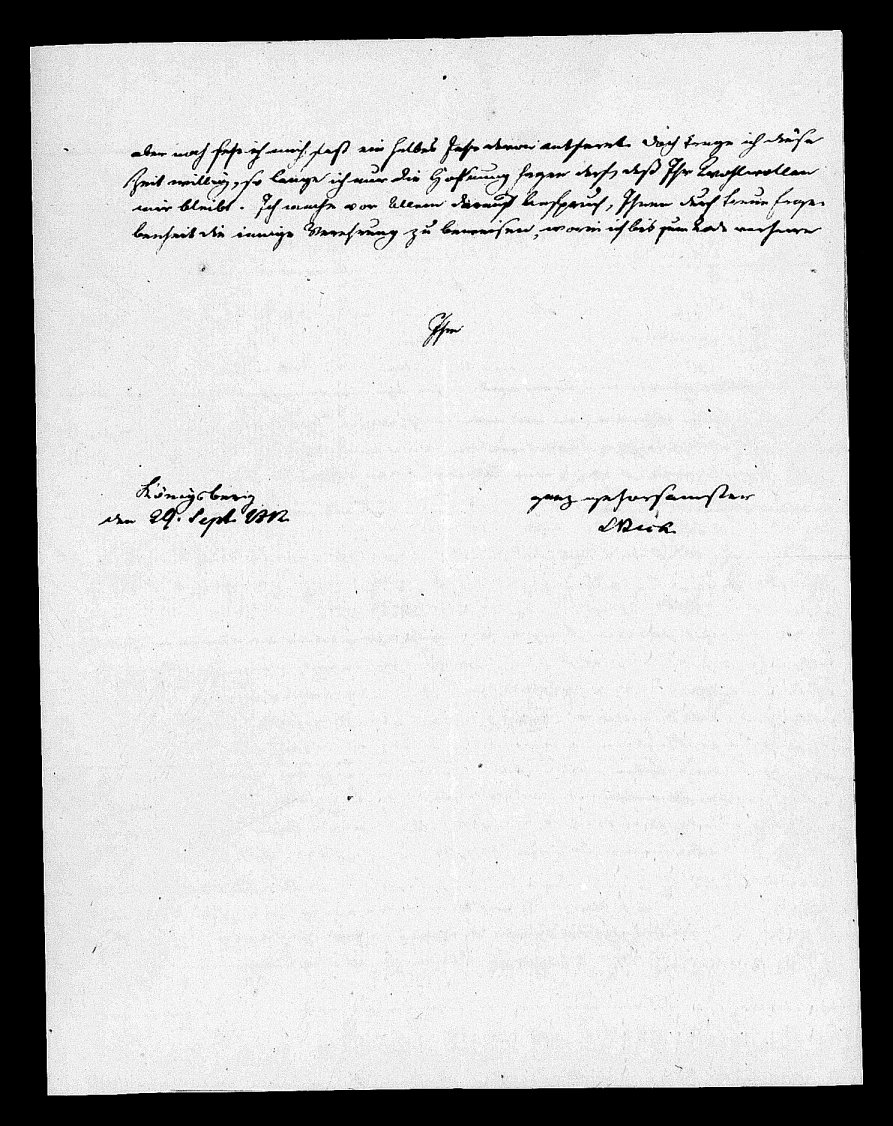 aber noch sehe ich mich fast ein halbes Jahr davon entfernt. Doch trage ich diese
Zeit willig, so lange ich nur die Hoffnung hegen darf, daß Ihr Wohlwollen
mir bleibt. Ich mache vor Allem darauf Anspruch, Ihnen durch treue Erge-
benheit die innige Verehrung zu beweisen, worin ich bis zum Tode verharre
Ihr
Königsberg
den 29. Sept.
ganz gehorsamster